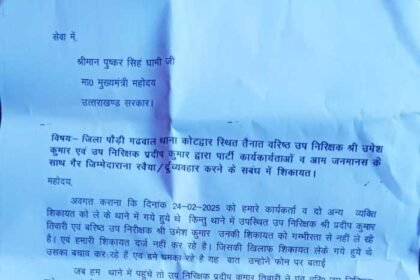 सेवा में,
श्रीमान पुष्कर सिंह धामी जी
मा0 मुख्यमंत्री महोदय
उत्तराखण्ड सरकार।
विषय:- जिला पौड़ी गढवाल थाना कोटद्वार स्थित तैनात वरिष्ठ उप निरिक्षक श्री उमेश
कुमार एवं उप निरिक्षक प्रदीप कुमार द्वारा पार्टी कार्यकार्यताओं व आम जनमानस के
साथ गैर जिम्मेदाराना रवैया/दुव्यवहार करने के सबंध में शिकायत।
महोदय,
अवगत कराना कि दिनांक 24-02-2025 को हमारे कार्यकर्ता व दो अन्य व्यक्ति
शिकायत को ले के थाने में गये हुये थे किन्तु थाने में उपस्थित उप निरिक्षक श्री प्रदीप कुमार
तिवारी एवं वरिष्ठ उप निरीक्षक श्री उमेश कुमार उनकी शिकायत को गम्भीरता से नही ले रहे
है। एवं हमारी शिकायत दर्ज नही कर रहे है। जिसकी खिलाफ शिकायत लेकें गये हुये थे
उसका बचाव कर रहे है एवं हमे धमका रहे है यह बात उन्होने फोन पर बताई
जब हम थाने में पहुंचे तो उप निरिक्षक प्रदीप कुमार तिवारी ने एवं वरिष्ठ उप